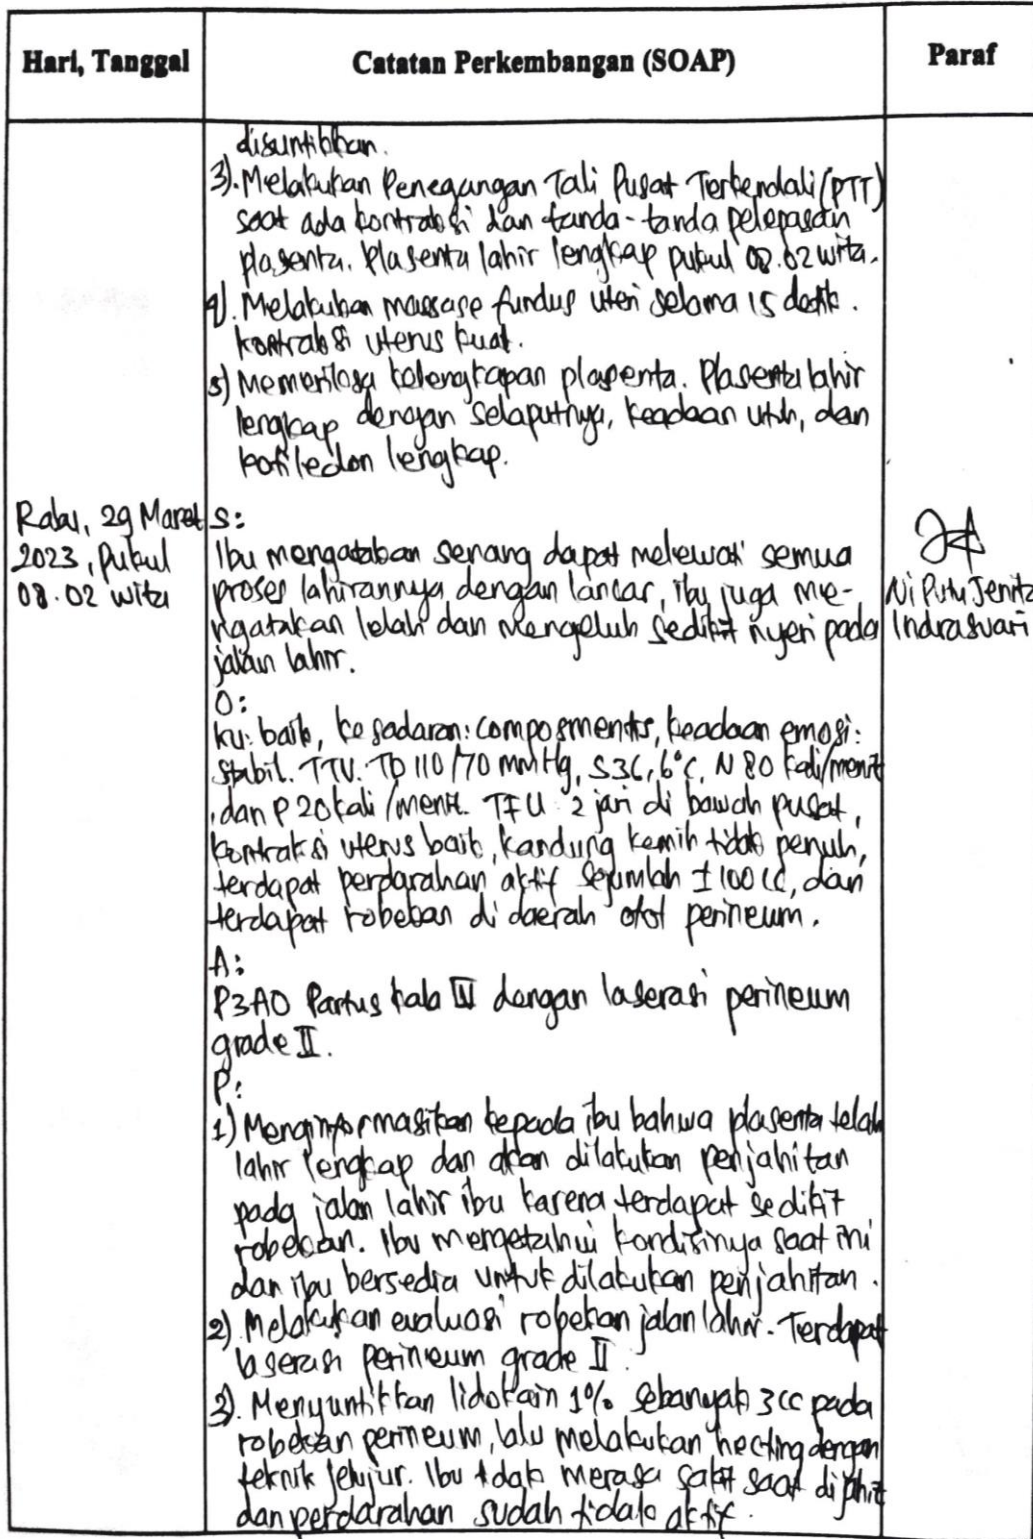 Hari, Tanggal
Catatan Perkembangan (SOAP)
Paraf
disuntikkan.
3). Melakukan Penegangan Tali Pusat Terkendali (PTT)
saat ada kontraksi dan tanda-tanda pelepasan
plasenta. Plasenta lahir lengkap pukul 08.02 wita.
4). Melakukan massase fundus uteri selama 15 detik.
kontraksi uterus kuat.
5) Memeriksa kelengkapan plasenta. Plasenta lahir
lengkap dengan selaputnya, keadaan utuh, dan
kotiledon lengkap.
Rabu, 29 Maret
2023, Pukul
08.02 wita
S:
Ibu mengatakan senang dapat melewati semua
proses lahirannya dengan lancar, ibu juga me-
ngatakan lelah dan mengeluh sedikit nyeri pada
jalan lahir.
O:
ku: baik, kesadaran: composmentis, keadaan emosi:
stabil. TTV: TD 110/70 mmHg, S 36,6°C, N 80 kali/menit
, dan P 20 kali/menit. TFU: 2 jari di bawah pusat,
kontraksi uterus baik, kandung kemih tidak penuh,
terdapat perdarahan aktif sejumlah ±100 cc, dan
terdapat robekan di daerah otot perineum.
A:
P3A0 Partus kala IV dengan laserasi perineum
grade II.
P:
1) Menginformasikan kepada ibu bahwa plasenta telah
lahir lengkap dan akan dilakukan penjahitan
pada jalan lahir ibu karena terdapat sedikit
robekan. Ibu mengetahui kondisinya saat ini
dan ibu bersedia untuk dilakukan penjahitan.
2). Melakukan evaluasi robekan jalan lahir. Terdapat
laserasi perineum grade II.
3). Menyuntikkan lidokain 1% sebanyak 3 cc pada
robekan perineum, lalu melakukan hecting dengan
teknik jelujur. Ibu tidak merasa sakit saat dijahit
dan perdarahan sudah tidak aktif.
Ni Putu Jenita
Indrasuari